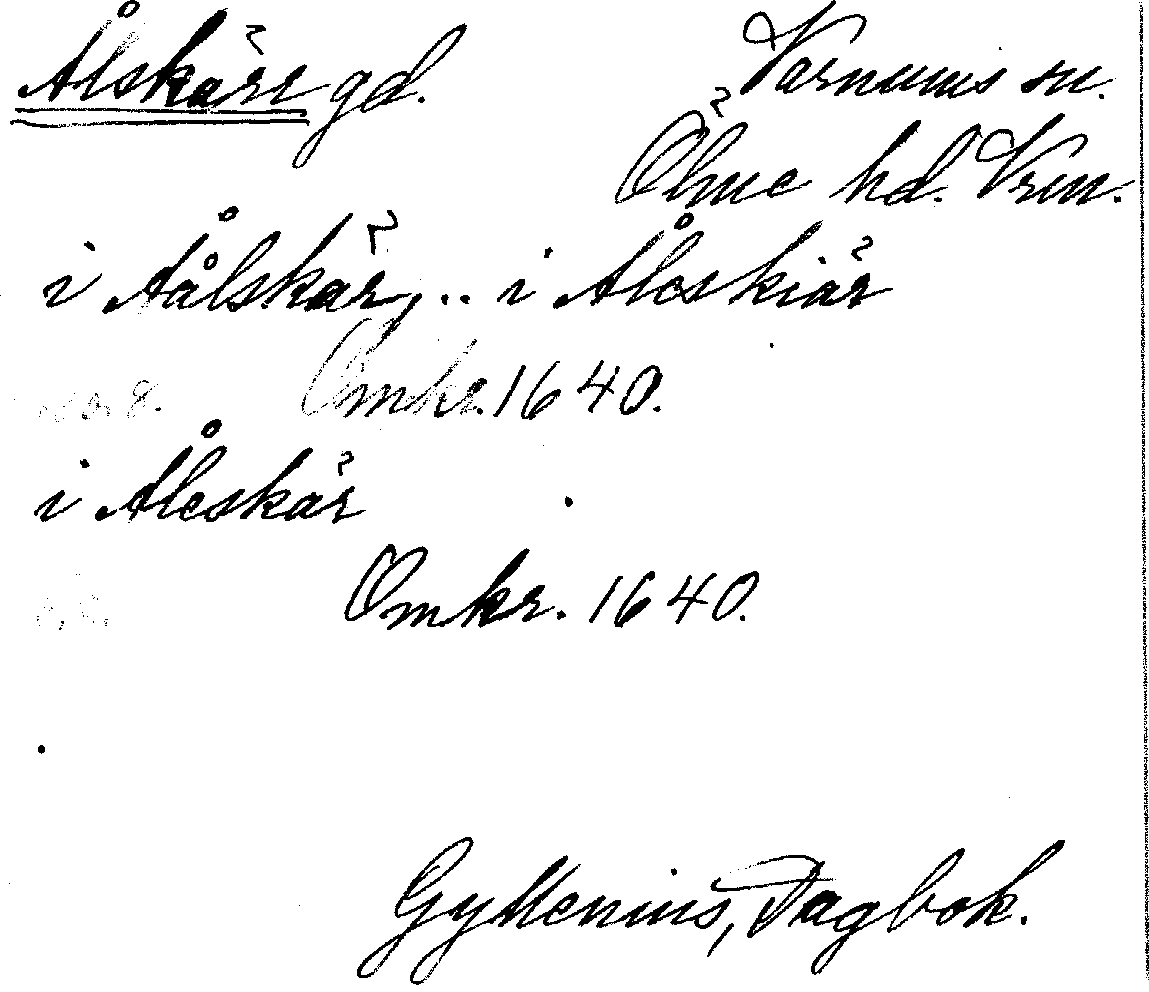 Ålskärr gd. Varnums sn.
Ölme hd. Vrm.
i Aålskär, .. i Åleskiär
Omkr. 1640.
i Åleskär
Omkr. 1640.
Gyllenius, Dagbok.